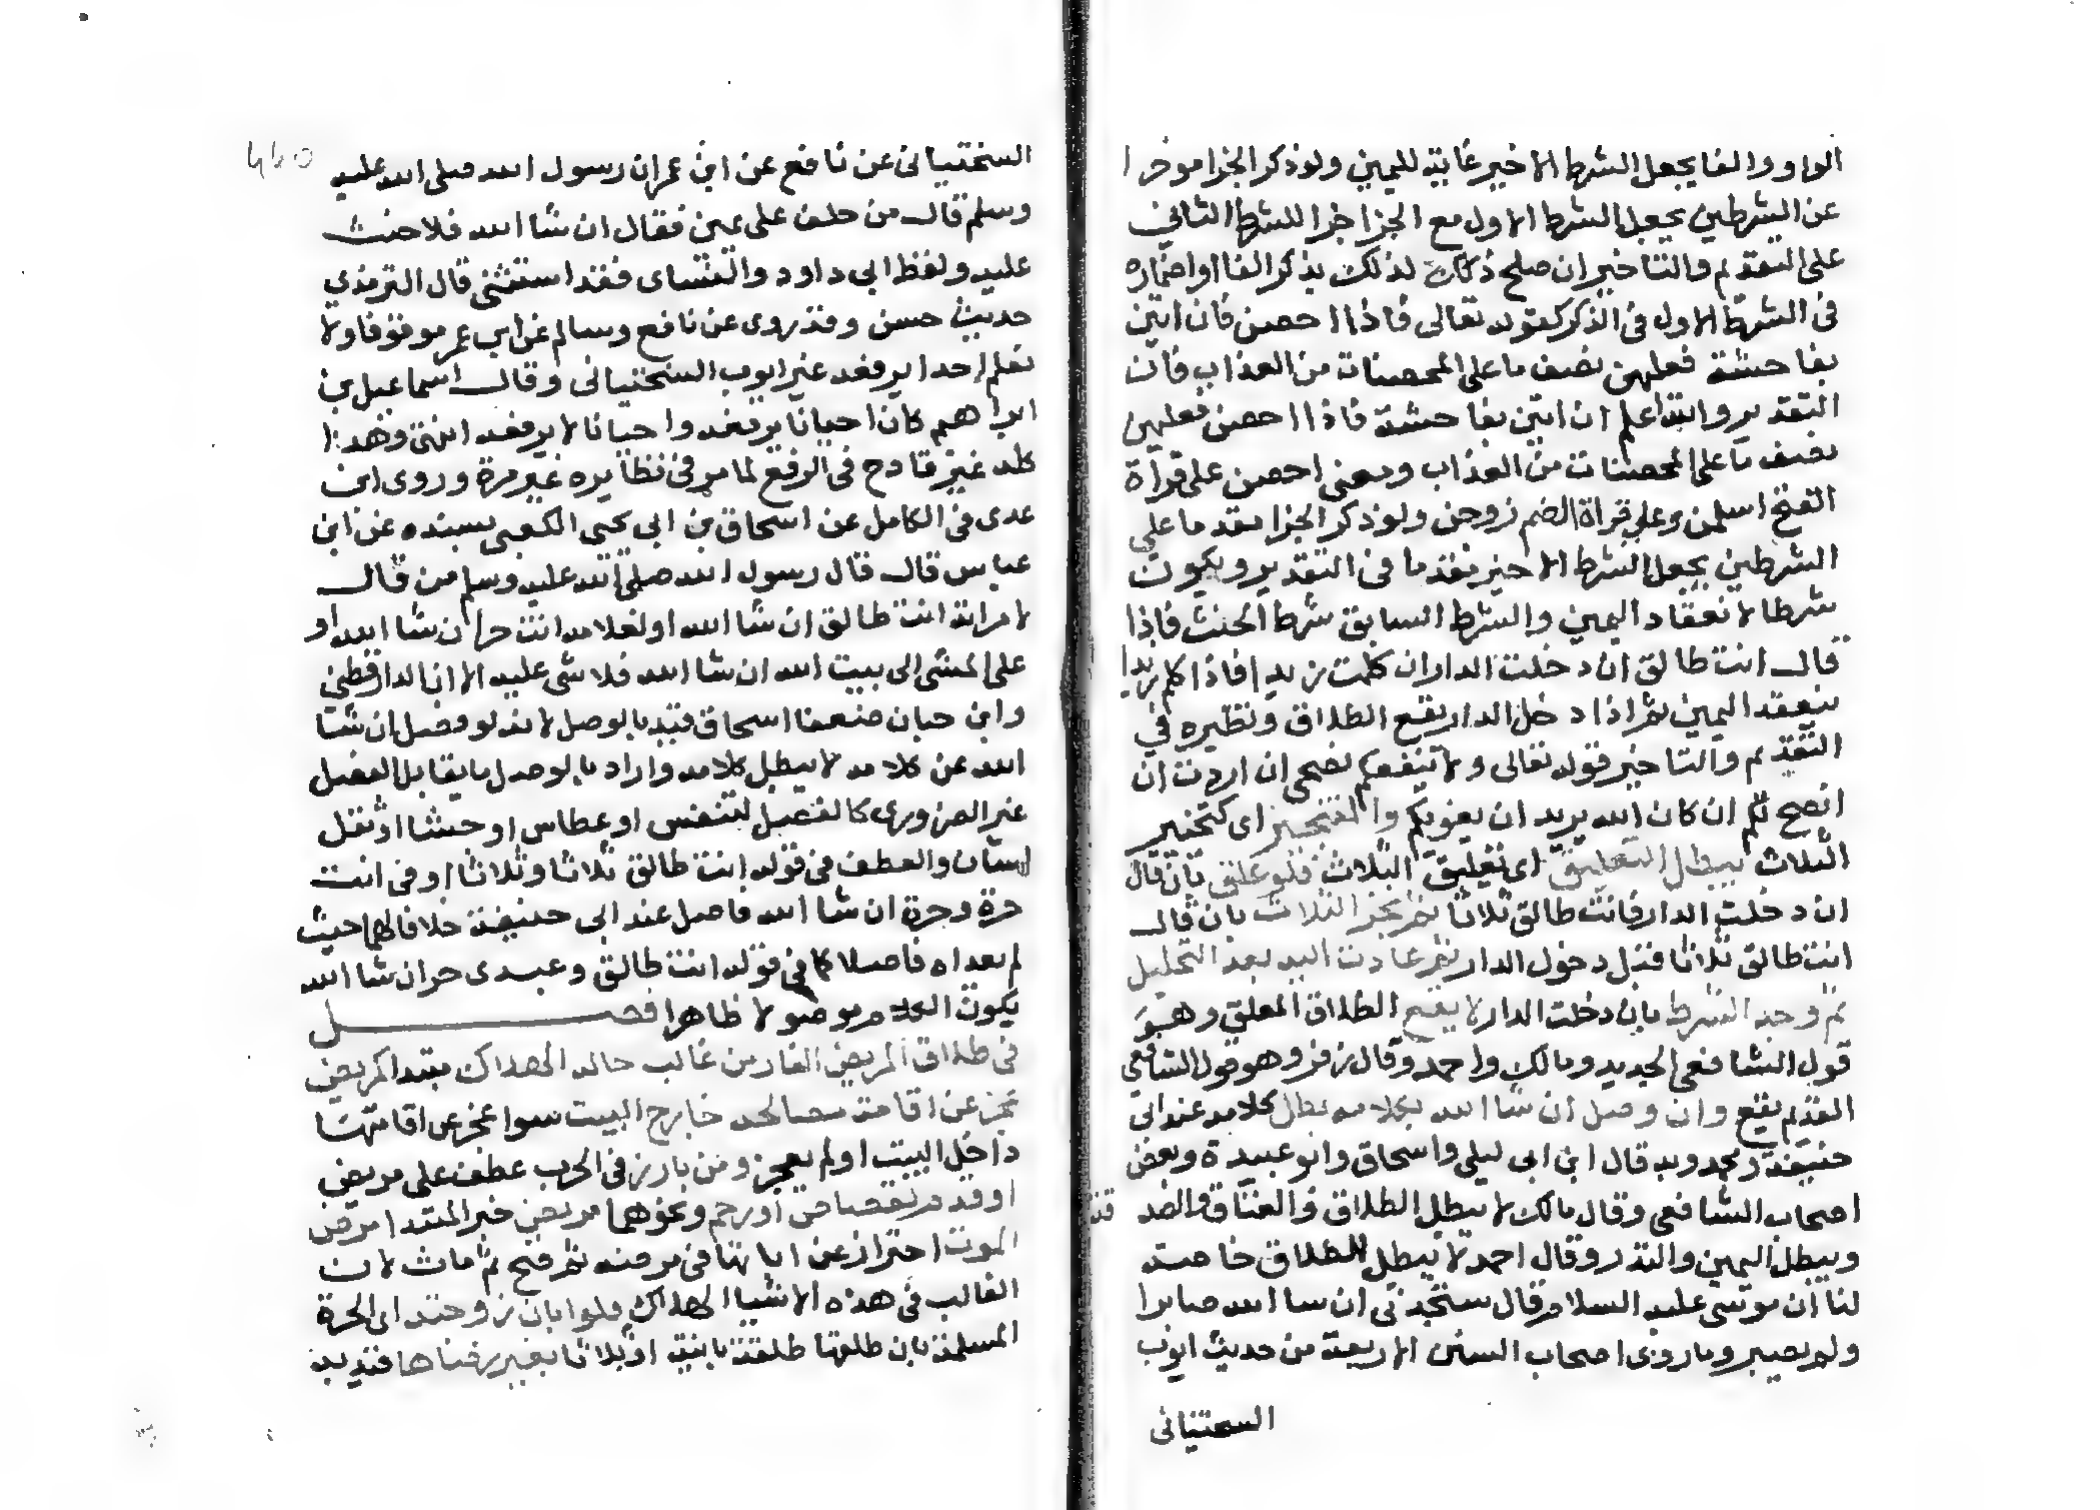 الواو والفا يجعل الشرط الاخير غاية لليمين ولو ذكر الجزا موخرا
عن الشرطين يجعل الشرط الاول مع الجزا جزا للشرط الثاني
على التقديم والتاخير ان صلح ذكره لذلك بذكر الفا او اضماره
في الشرط الاول في الذكر كقوله تعالى فاذا احصن فان اتين
بفاحشة فعليهن نصف ما على المحصنات من العذاب فان
التقدير والله اعلم ان اتين بفاحشة فاذا احصن فعليهن
نصف ما على المحصنات من العذاب ومعنى احصن على قراة
الفتح اسلمن وعلى قراة الضم زوجن ولو ذكر الجزا مقدما على
الشرطين يجعل الشرط الاخير مقدما في التقدير ويكون
شرطا لانعقاد اليمين والشرط السابق شرط الحنث فاذا
قال انت طالق ان دخلت الدار ان كلمت زيدا فاذا كلم زيدا
ينعقد اليمين ثم اذا دخل الدار يقع الطلاق ونظيره في
التقديم والتاخير قوله تعالى ولا ينفعكم نصحي ان اردت ان
انصح لكم ان كان الله يريد ان يغويكم والتنجيز اى كتنجيز
الثلاث يبطل التعليق اى تعليق الثلاث فلو علق بان قال
ان دخلت الدار فانت طالق ثلاثا ثم نجز الثلاث بان قال
انت طالق ثلاثا قبل دخول الدار ثم عادت اليه بعد التحليل
ثم وجد الشرط بان دخلت الدار لا يقع الطلاق المعلق وهو
قول الشافعي الجديد ومالك واحمد وقال زفر وهو قول الشافعي
القديم يقع وان وصل ان شا الله بكلامه بطل كلامه عند ابى
حنيفة ومحمد وبه قال ابن ابى ليلى واسحاق وابو عبيدة وبعض
اصحاب الشافعي وقال مالك لا يبطل الطلاق والعتاق والصدقة
ويبطل اليمين والنذر وقال احمد لا يبطل الطلاق خاصة
لنا ان موسى عليه السلام قال ستجدنى ان شا الله صابرا
ولم يصبر وما روى اصحاب السنن الاربعة من حديث ايوب
السختيانى
السختيانى عن نافع عن ابن عمر ان رسول الله صلى الله عليه
وسلم قال من حلف على يمين فقال ان شا الله فلا حنث
عليه ولفظ ابى داود والنسائ فقد استثنى قال الترمذي
حديث حسن وقد روى عن نافع وسالم عن ابن عمر موقوفا ولا
نعلم احدا يرفعه غير ايوب السختيانى وقال اسماعيل بن
ابراهيم كان احيانا يرفعه واحيانا لا يرفعه انتهى وهذا
كله غير قادح في الرفع لما مر في نظايره غير مرة وروى ابن
عدى في الكامل عن اسحاق بن ابى يحيى الكعبى بسنده عن ابن
عباس قال قال رسول الله صلى الله عليه وسلم من قال
لامراته انت طالق ان شا الله او لغلامه انت حر ان شا الله او
على المشى الى بيت الله ان شا الله فلا شى عليه الا ان الدارقطني
وابن حبان ضعفا اسحاق قيد بالوصل لانه لو فصل ان شا
الله عن كلامه لا يبطل كلامه واراد بالوصل ما يقابل الفصل
غير الضرورى كالفصل لتنفس او عطاس او جشا او ثقل
لسان والعطف في قوله انت طالق ثلاثا وثلاثا او في انت
حرة وحرة ان شا الله فاصل عند ابى حنيفة خلافا لهما حيث
لم يعداه فاصلا كما في قوله انت طالق وعبدى حر ان شا الله
يكون الكلام موصولا ظاهرا فصل
في طلاق المريض الفار من غالب حاله الهلاك مبتدا كمريض
عجز عن اقامة مصالحه خارج البيت سوا عجز عن اقامتها
داخل البيت او لم يعجز ومن بارز في الحرب عطف على مريض
او قدم لقصاص او رجم ونحوهما مريض خبر المبتدا مرض
الموت احتراز عن ابانتها في مرضه ثم صح ثم مات لان
الغالب في هذه الاشيا الهلاك فلو ابان زوجته اى الحرة
المسلمة بان طلقها طلقة باينة او ثلاثا بغير رضاها قيد به